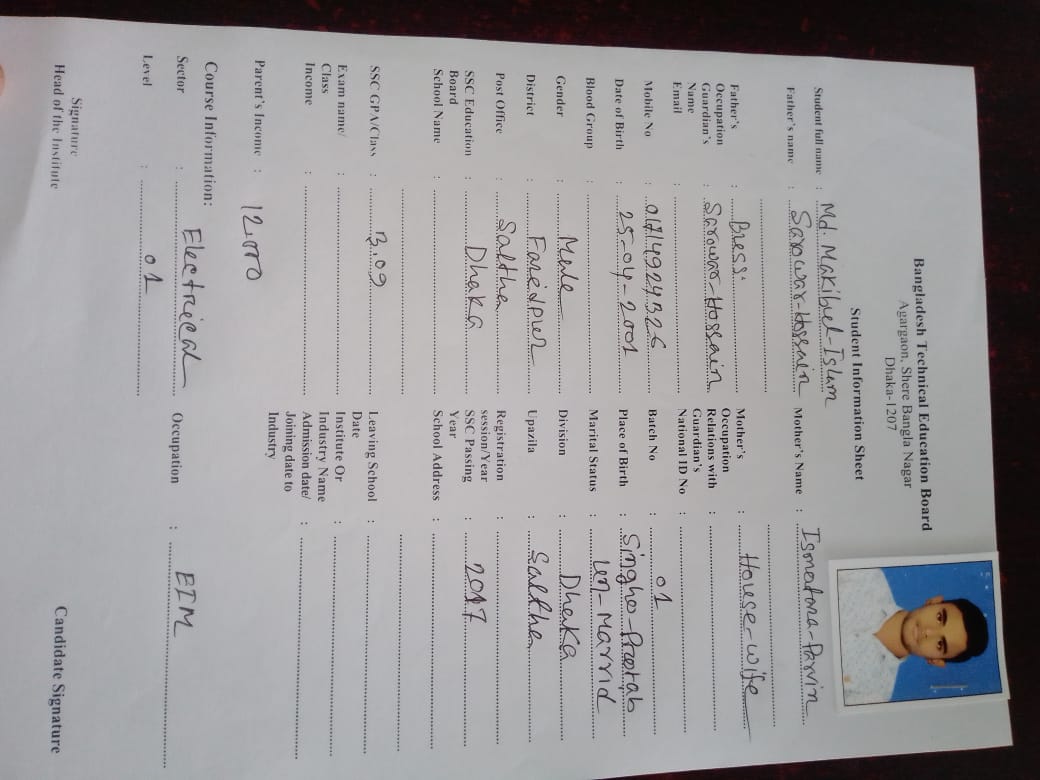 Bangladesh Technical Education Board
Agargaon, Shere Bangla Nagar
Dhaka-1207
Student Information Sheet
Student full name : Md. Makibul-Islam
Father's name : Sarowar-Hossain Mother's Name : Ismatara-Parvin
Father's Occupation : Bress. Mother's Occupation : House-wife
Guardian's Name : Sarowar-Hossain Relations with Guardian's :
Email : National ID No :
Mobile No : 01714924326 Batch No : 01
Date of Birth : 25-04-2001 Place of Birth : Singho-Protab
Blood Group : Marital Status : Un-Marrid
Gender : Male Division : Dhaka
District : Faridpur Upazila : Saltha
Post Office : Saltha Registration session/Year :
SSC Education Board : Dhaka SSC Passing Year : 2017
School Name : School Address :
SSC GPA/Class : 3.09 Leaving School Date :
Exam name/ Class : Institute Or Industry Name :
Income : Admission date/ Joining date to Industry :
Parent's Income : 12,000
Course Information:
Sector : Electrical Occupation : EIM
Level : 01
Signature
Head of the Institute Candidate Signature